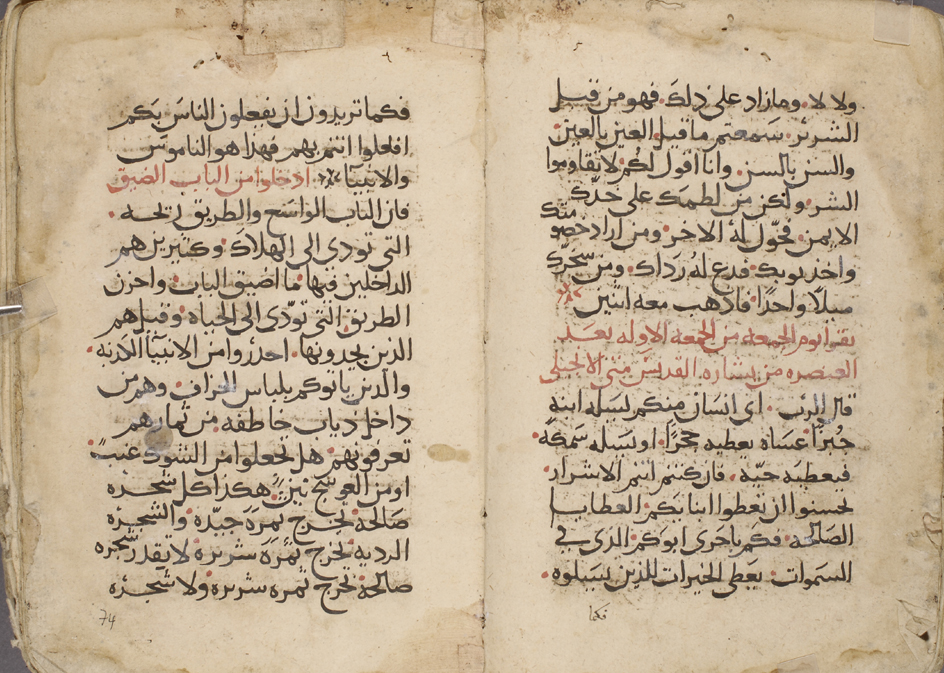 ولا لا. وما زاد على ذلك. فهو من قبل
الشرير. سمعتم ما قيل العين بالعين.
والسن بالسن. وانا اقول لكم لا تقاوموا
الشر. ولكن من لطمك على خدك
الايمن. فحول له الاخر. ومن اراد خصومتك
واخد توبك. فدع له رداك. ومن سخرك
ميلا واحدا. فادهب معه اتنين
تقرا يوم الجمعه من الجمعه الاوله بعد
العنصره من بشاره القديس متى الانجيلى
قال الرب. اى انسان منكم يسله ابنه
خبزا عساه يعطيه حجرا. او يسيله سمكة.
فيعطيه حيه. فان كنتم انتم الاشرار.
تحسنوا ان تعطوا ابنايكم العطايا
الصالحة. فكم باحرى ابوكم الدى فى
السموات. يعطى الخيرات للدين يسيلوه.
فكما
فكما تريدون ان يفعلون الناس بكم
افعلوا انتم بهم فهدا هو الناموس
والانبيا ادخلوا من الباب الضيق
فان الباب الواسع والطريق رحبه.
التى تودى الى الهلاك. وكتيرين هم
الداخلين فيها. ما اضيق الباب. واحزن
الطريق التى تودى الى الحياه. وقليل هم
الدين يجدونها. احدروا من الانبيا الكدبه.
والدين ياتوكم بلباس الخراف. وهم من
داخل دياب خاطفه من تمارهم
تعرفونهم. هل تجعلوا من الشوك عنب
او من العوسج تين. هكدا كل شجره
صالحة تخرج تمرة جيده. والشجره
الرديه تخرج تمرة شريره. لا تقدر شجره
صالحة تخرج تمره شريره. ولا شجره
74